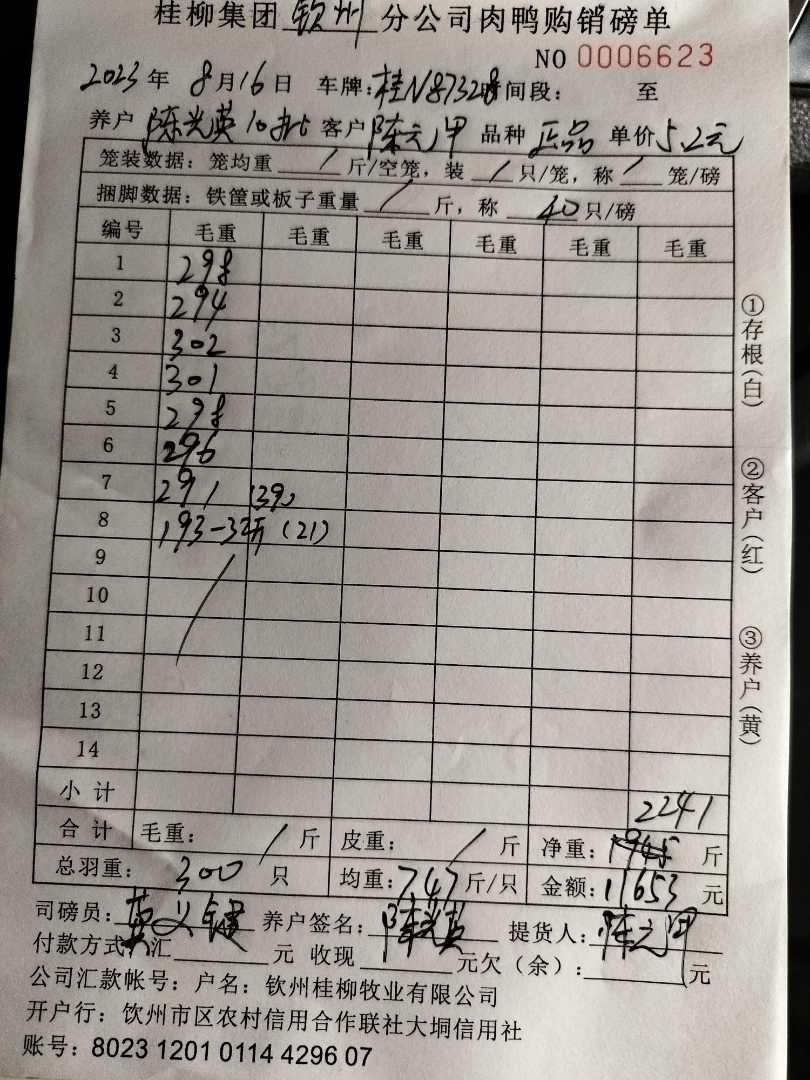 桂柳集团 钦州 分公司肉鸭购销磅单
NO 0006623
2023 年 8 月 16 日 车牌: 桂N87328 时间段: 至
养户 陈光英 10批 客户 陈元甲 品种 正品 单价 5.2元
笼装数据: 笼均重 / 斤/空笼, 装 / 只/笼, 称 / 笼/磅
捆脚数据: 铁筐或板子重量 / 斤, 称 40 只/磅
编号 毛重 毛重 毛重 毛重 毛重 毛重
1 298
2 294
3 302
4 301
5 298
6 296
7 291 (39)
8 193-3斤 (21)
9
10
11
12
13
14
小计 2241
合计 毛重: / 斤 皮重: / 斤 净重: 斤
总羽重: 300 只 均重: 7.47 斤/只 金额: 11653 元
司磅员: 养户签名: 陈光英 提货人: 陈元甲
付款方式: 汇 元 收现 元欠(余): 元
公司汇款帐号: 户名: 钦州桂柳牧业有限公司
开户行: 钦州市区农村信用合作联社大垌信用社
账号: 8023 1201 0114 4296 07
①存根(白)
②客户(红)
③养户(黄)